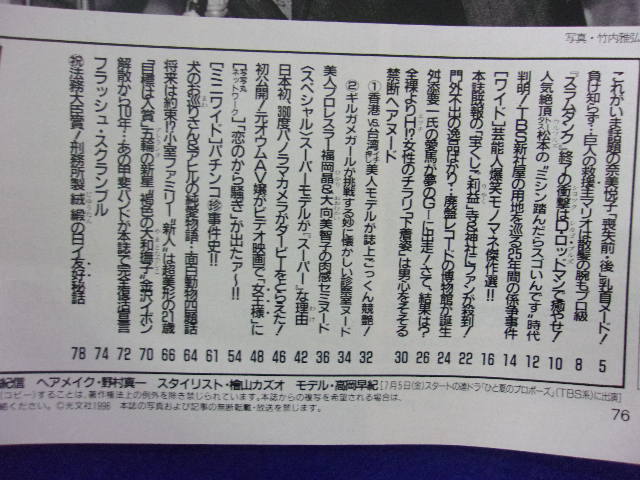 写真・竹内雅弘
これがいま話題の奈美悦子「喪失前・後」乳首ヌード! 5
負け知らず…巨人の救援ミマリオは散髪の腕もプロ級 8
『スラムダンク』終了の衝撃はD・ロッドマンで癒やせ! 10
人気絶頂松本の“ミシン踏んだらスゴいんです”時代 12
判明!TBS新社屋の用地を巡る25年間の係争事件 14
[ワイド]芸能人爆笑モノマネ傑作選!! 16
本誌既報の「宝くじご利益」寺&神社にファンが殺到! 22
門外不出の逸品ばかり…廃盤レコードの博物館が誕生 24
舛添要一氏の愛馬が夢のGⅠに出走!さて、結果は? 26
全裸よりH!?女性のチラリ「下着姿」は男心をそそる 30
禁断ヘアヌード
①香港vs台湾美人モデルが誌上ごっくん競艶! 32
②ギルガメガールが挑戦する「妙に懐かしい診察室ヌード 34
美人プロレスラー福岡晶&大向美智子の肉感セミヌード 36
〈スペシャル〉スーパーモデルが“スーパー”な理由 42
日本初、360度パノラマカメラがダービーをとらえた! 46
初公開!元オウムAV嬢がビデオ映画で“女王様”に 48
[写写丸ネットワーク]「恋のから騒ぎ」が出たァ〜!! 54
[ミニワイド]パチンコ㊙事件史!! 61
犬のお巡りさん&アヒルの純愛物語…面白動物四題話 64
将来は約束!?小室ファミリー“新人”は超美形の21歳 66
「目標は入賞」五輪の新星“褐色の大和撫子”金沢イボンヌ 70
解散から10年…あの甲斐バンドが本誌で完全復活宣言 72
フラッシュ・スクランブル 74
㊗法務大臣賞!刑務所製絨緞の日ソ友好秘話 78
紀信 ヘアメイク・野村真一 スタイリスト・檜山カズオ モデル・高岡早紀[7月5日(金)スタートの連ドラ「ひと夏のプロポーズ」(TBS系)に出演]
(コピー)することは、著作権法上の例外を除き禁じられています。本誌からの複写を希望される場合は、
絡ください。©光文社1996 本誌の写真および記事の無断転載・放送を禁じます。
76